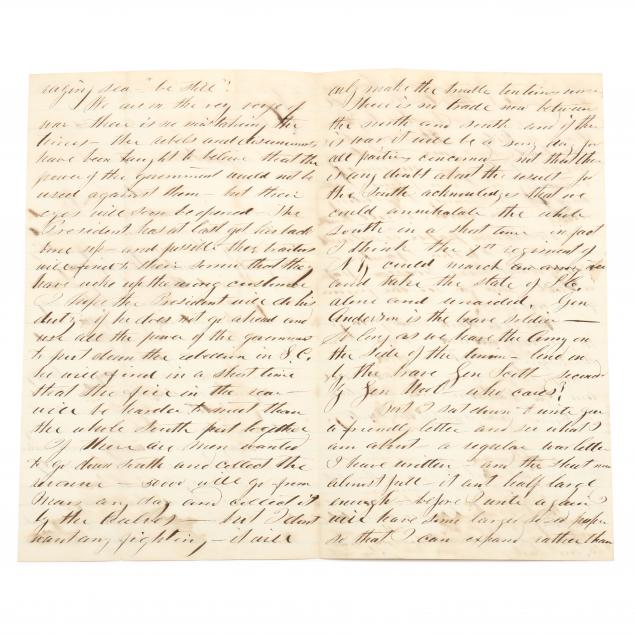 raging sea - "be still"!
We are on the very verge of
war - there is no mistaking the
times - the rebels and disunionists
have been taught to believe that the
power of the government would not be
used against them - but their
eyes will soon be opened - The
President has at last got his back
bone up - and possibly these traitors
will find to their sorrow that they
have woke up the wrong customer
I hope the President will do his
duty - if he does not go ahead and
use all the power of the government
to put down the rebellion in S.C.
he will find in a short time
that the fire in the rear -
will be harder to meet than
the whole South put together
If there are men wanted
to go down South and collect the
revenue - will go from
any day and collect it
by the - but I dont
want any fighting - it will
only make the smaller
There is no trade now between
the north and south and if there
is war it will be a sorry day for
all parties concerned - not that there
is any doubt about the result for
the South acknowledges that we
could annihilate the whole
South in a short time - in fact
I think the 7th regiment of
N.Y. could march
and take the state of S.C.
alone and unaided. Gen
Anderson is the brave soldier -
So long as we have the Army on
the side of the Union - led on
by the brave Gen Scott seconded
by Gen Wool - who cares?
But I sat down to write you
a friendly letter and see what I
am about - a regular war letter
I have written - and the sheet now
almost full - it ant half large
enough - before I write again I
will have some larger sized paper
so that I can expand rather than